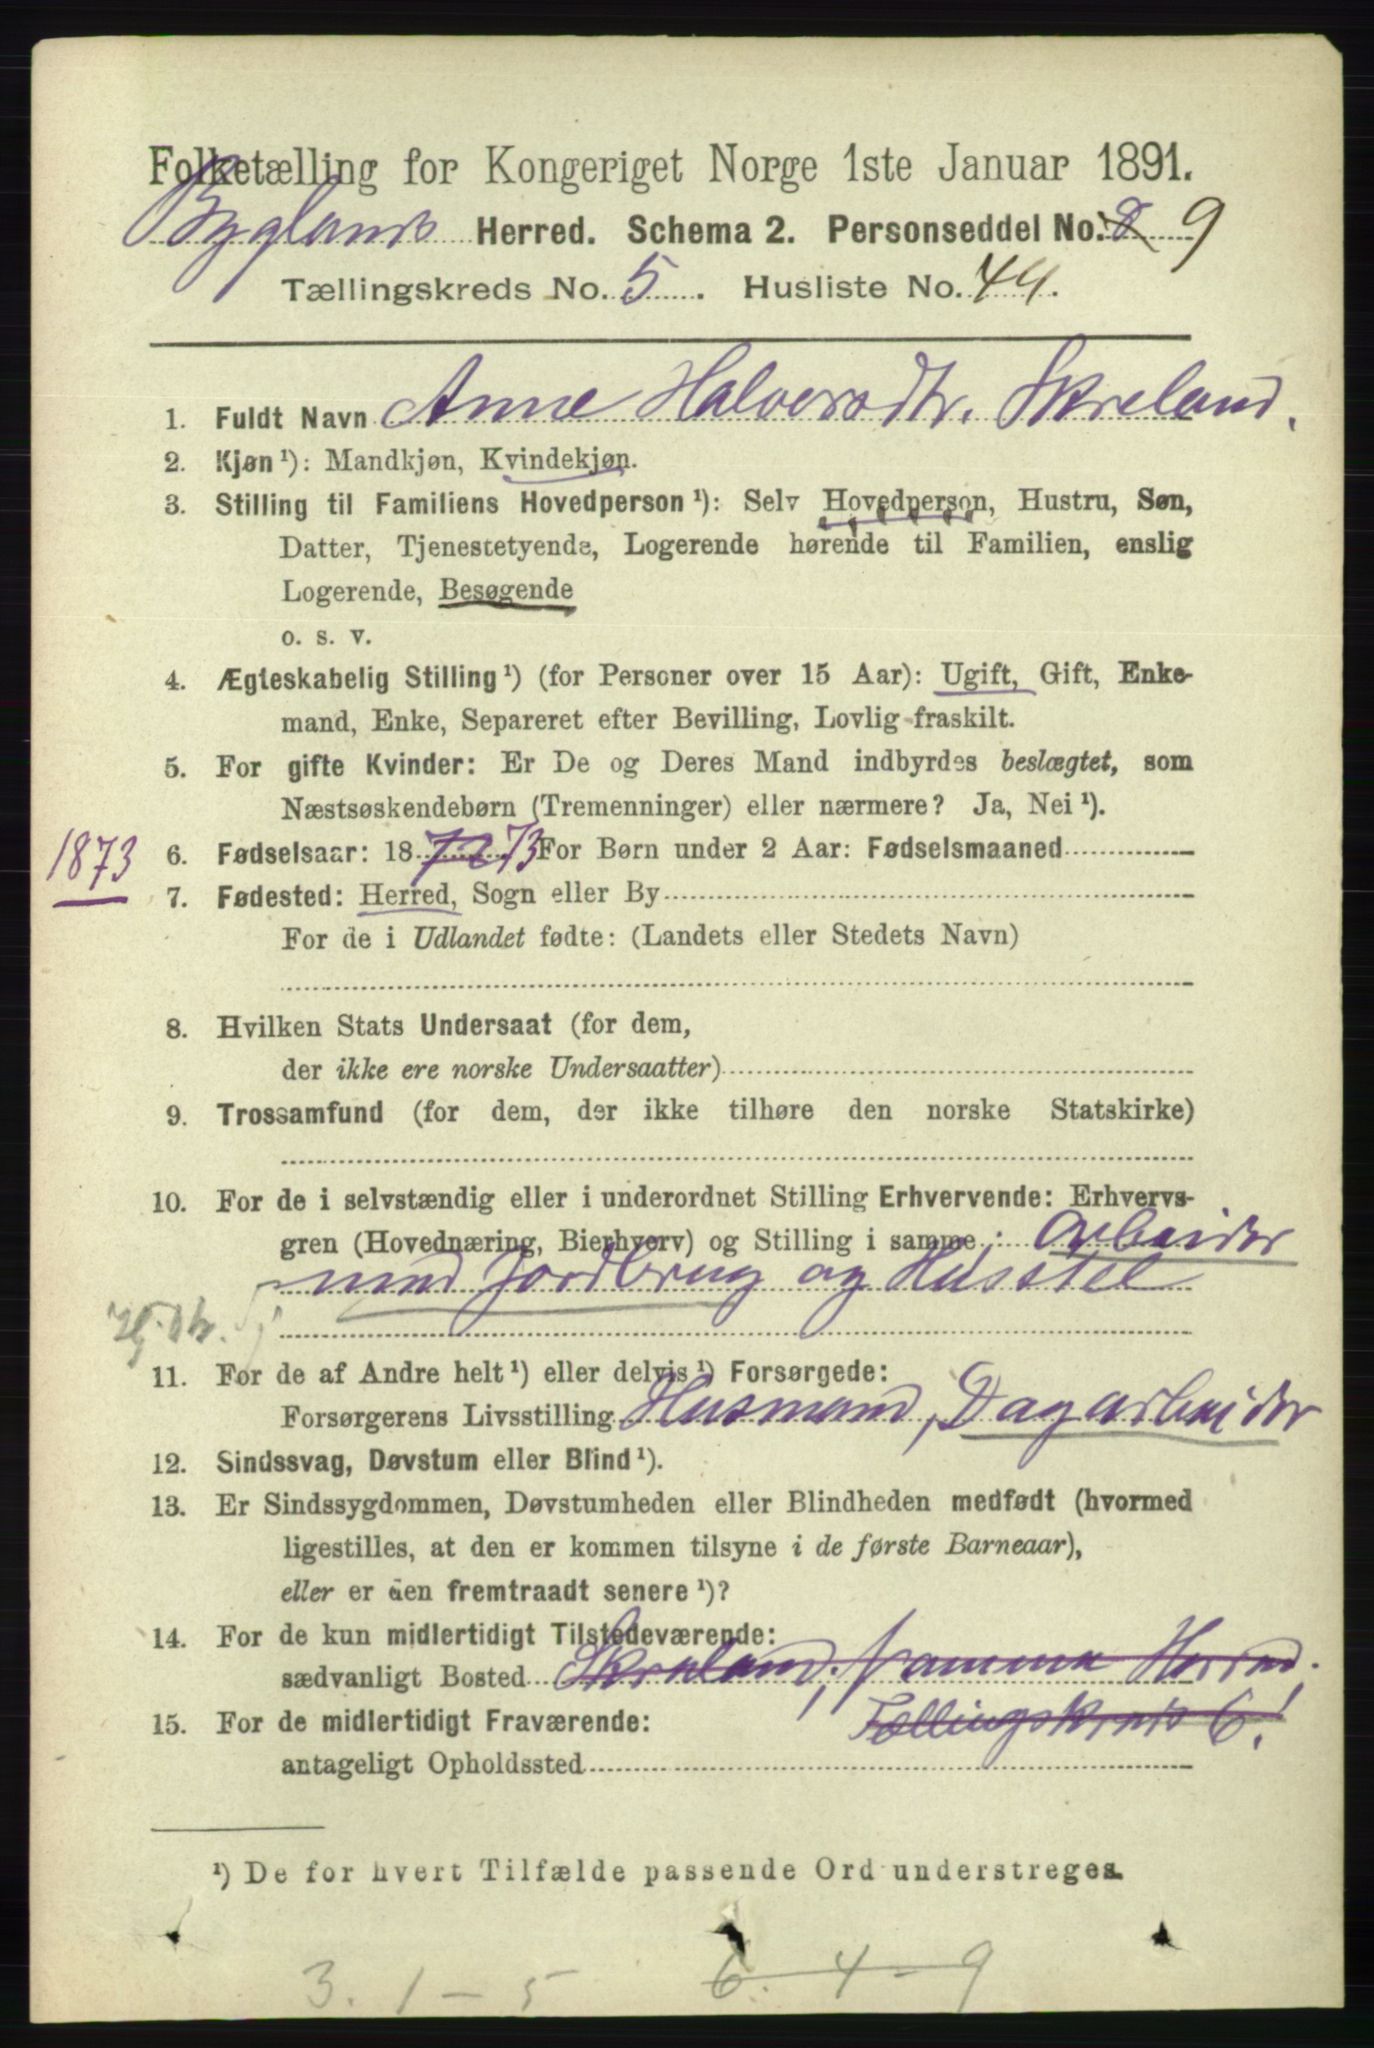 Folketælling for Kongeriget Norge 1ste Januar 1891.
Byglands Herred. Schema 2. Personseddel No. 8 9
Tællingskreds No. 5. Husliste No. 44.
1. Fuldt Navn Anne Halvorsdtr. Skreland.
2. Kjøn ¹): Mandkjøn, Kvindekjøn.
3. Stilling til Familiens Hovedperson ¹): Selv Hovedperson, Hustru, Søn,
Datter, Tjenestetyende, Logerende hørende til Familien, enslig
Logerende, Besøgende
o. s. v.
4. Ægteskabelig Stilling ¹) (for Personer over 15 Aar): Ugift, Gift, Enke-
mand, Enke, Separeret efter Bevilling, Lovlig fraskilt.
5. For gifte Kvinder: Er De og Deres Mand indbyrdes beslægtet, som
Næstsøskendebørn (Tremenninger) eller nærmere? Ja, Nei ¹).
1873 6. Fødselsaar: 18 72 73 For Børn under 2 Aar: Fødselsmaaned
7. Fødested: Herred, Sogn eller By
For de i Udlandet fødte: (Landets eller Stedets Navn)
8. Hvilken Stats Undersaat (for dem,
der ikke ere norske Undersaatter)
9. Trossamfund (for dem, der ikke tilhøre den norske Statskirke)
10. For de i selvstændig eller i underordnet Stilling Erhvervende: Erhvervs-
gren (Hovednæring, Bierhverv) og Stilling i samme: Arbeider
med Jordbrug og Husstel
Hj. dtr.
11. For de af Andre helt ¹) eller delvis ¹) Forsørgede:
Forsørgerens Livsstilling Husmand, Dagarbeider
12. Sindssvag, Døvstum eller Blind ¹).
13. Er Sindssygdommen, Døvstumheden eller Blindheden medfødt (hvormed
ligestilles, at den er kommen tilsyne i de første Barneaar),
eller er den fremtraadt senere ¹)?
14. For de kun midlertidigt Tilstedeværende:
sædvanligt Bosted Skreland, samme Herred.
15. For de midlertidigt Fraværende: Tællingskreds 6!
antageligt Opholdssted
¹) De for hvert Tilfælde passende Ord understreges.
3. 1 - 5 6. 4 - 9